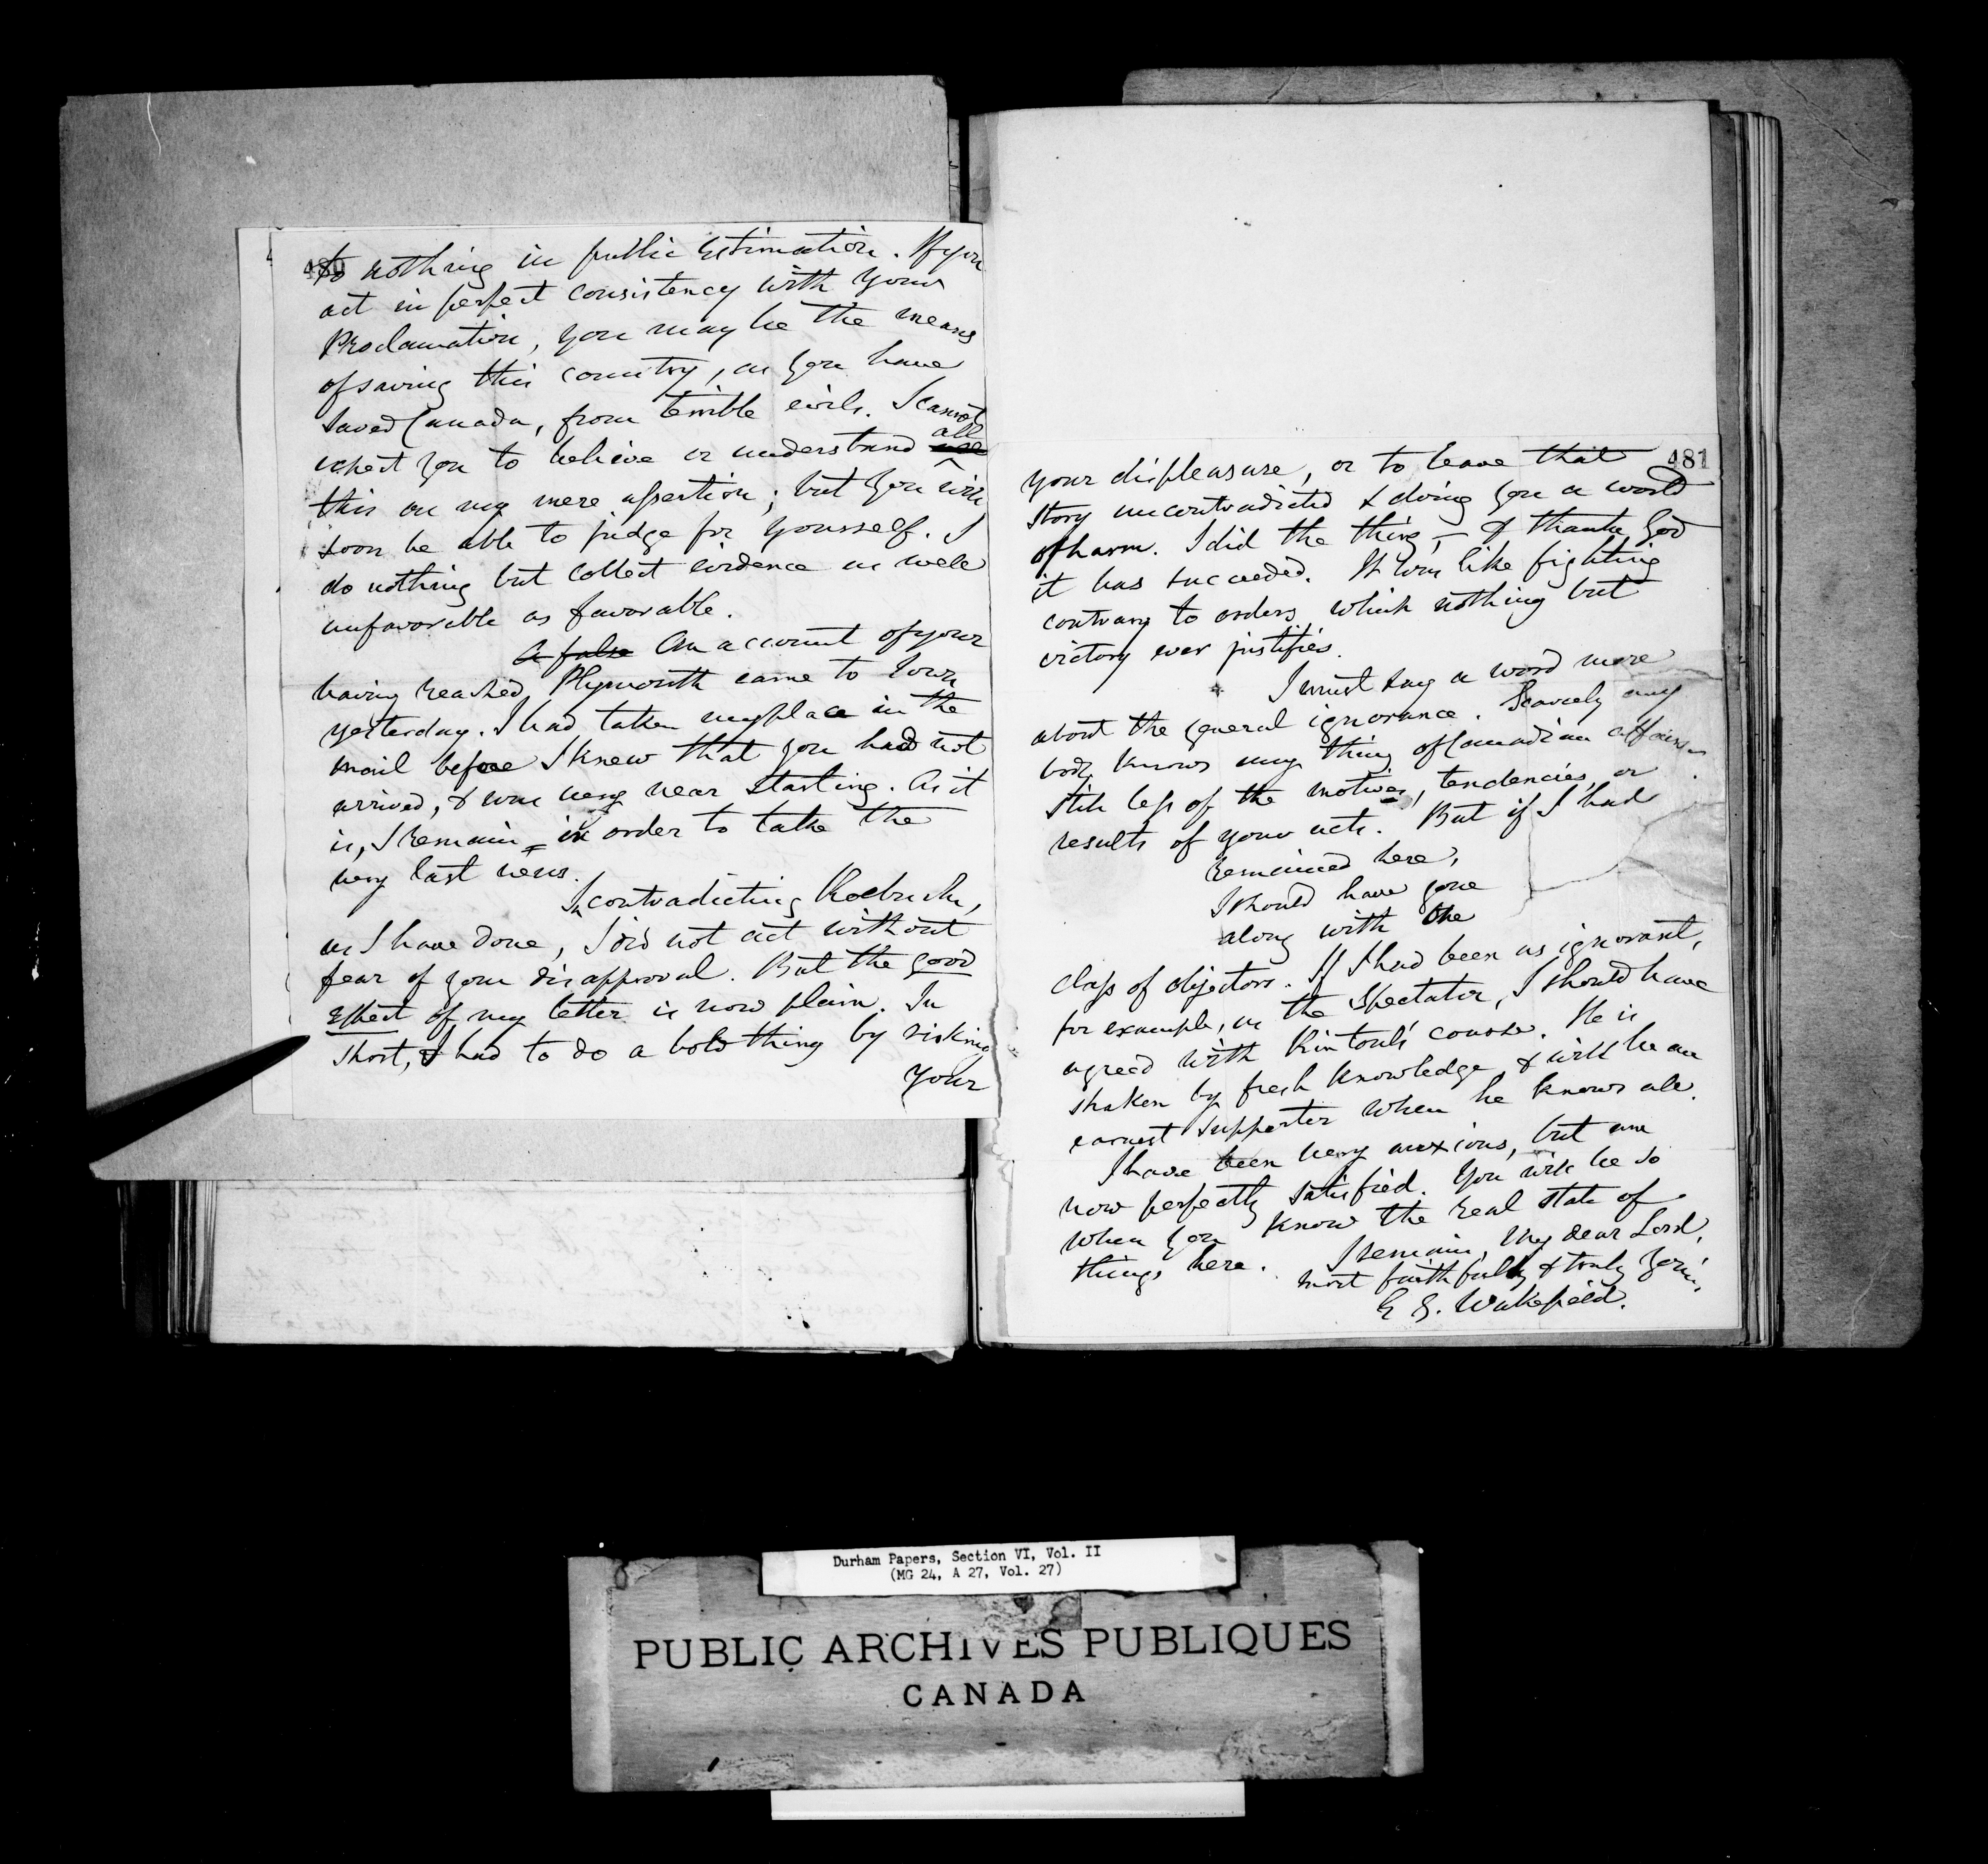 480
to nothing in public estimation. If you
act in perfect consistency with your
Proclamation, you may be the means
of saving this country, as you have
saved Canada, from terrible evils. I cannot
expect you to believe or understand all
this on my mere assertion; but you will
soon be able to judge for yourself. I
do nothing but collect evidence as well
unfavorable as favorable.
A false An account of your
having reached Plymouth came to town
yesterday. I had taken my place in the
mail before I knew that you had not
arrived, & was very near starting. As it
is, I remain in order to take the
very last news.
In contradicting Roebuck,
as I have done, I did not act without
fear of your disapproval. But the good
effect of my letter is now plain. In
short, I had to do a bold thing by risking
your
481
your displeasure, or to leave that
story uncontradicted & doing you a world
of harm. I did the thing, – & thank God
it has succeeded. It was like fighting
contrary to orders which nothing but
victory ever justifies.
I must say a word more
about the general ignorance. Scarcely any
body knows any thing of Canadian affairs
still less of the motives, tendencies, or
results of your acts. But if I had
remained here,
I should have gone
along with the
class of objectors. If I had been as ignorant,
for example, as the Spectator, I should have
agreed with Rintoul's course. He is
shaken by fresh knowledge, & will be an
earnest supporter when he knows all.
I have been very anxious, but am
now perfectly satisfied. You will be so
when you know the real state of
things here. I remain, My dear Lord,
most faithfully & truly yours,
E G. Wakefield.
Durham Papers, Section VI, Vol. II
(MG 24, A 27, Vol. 27)
PUBLIC ARCHIVES PUBLIQUES
CANADA